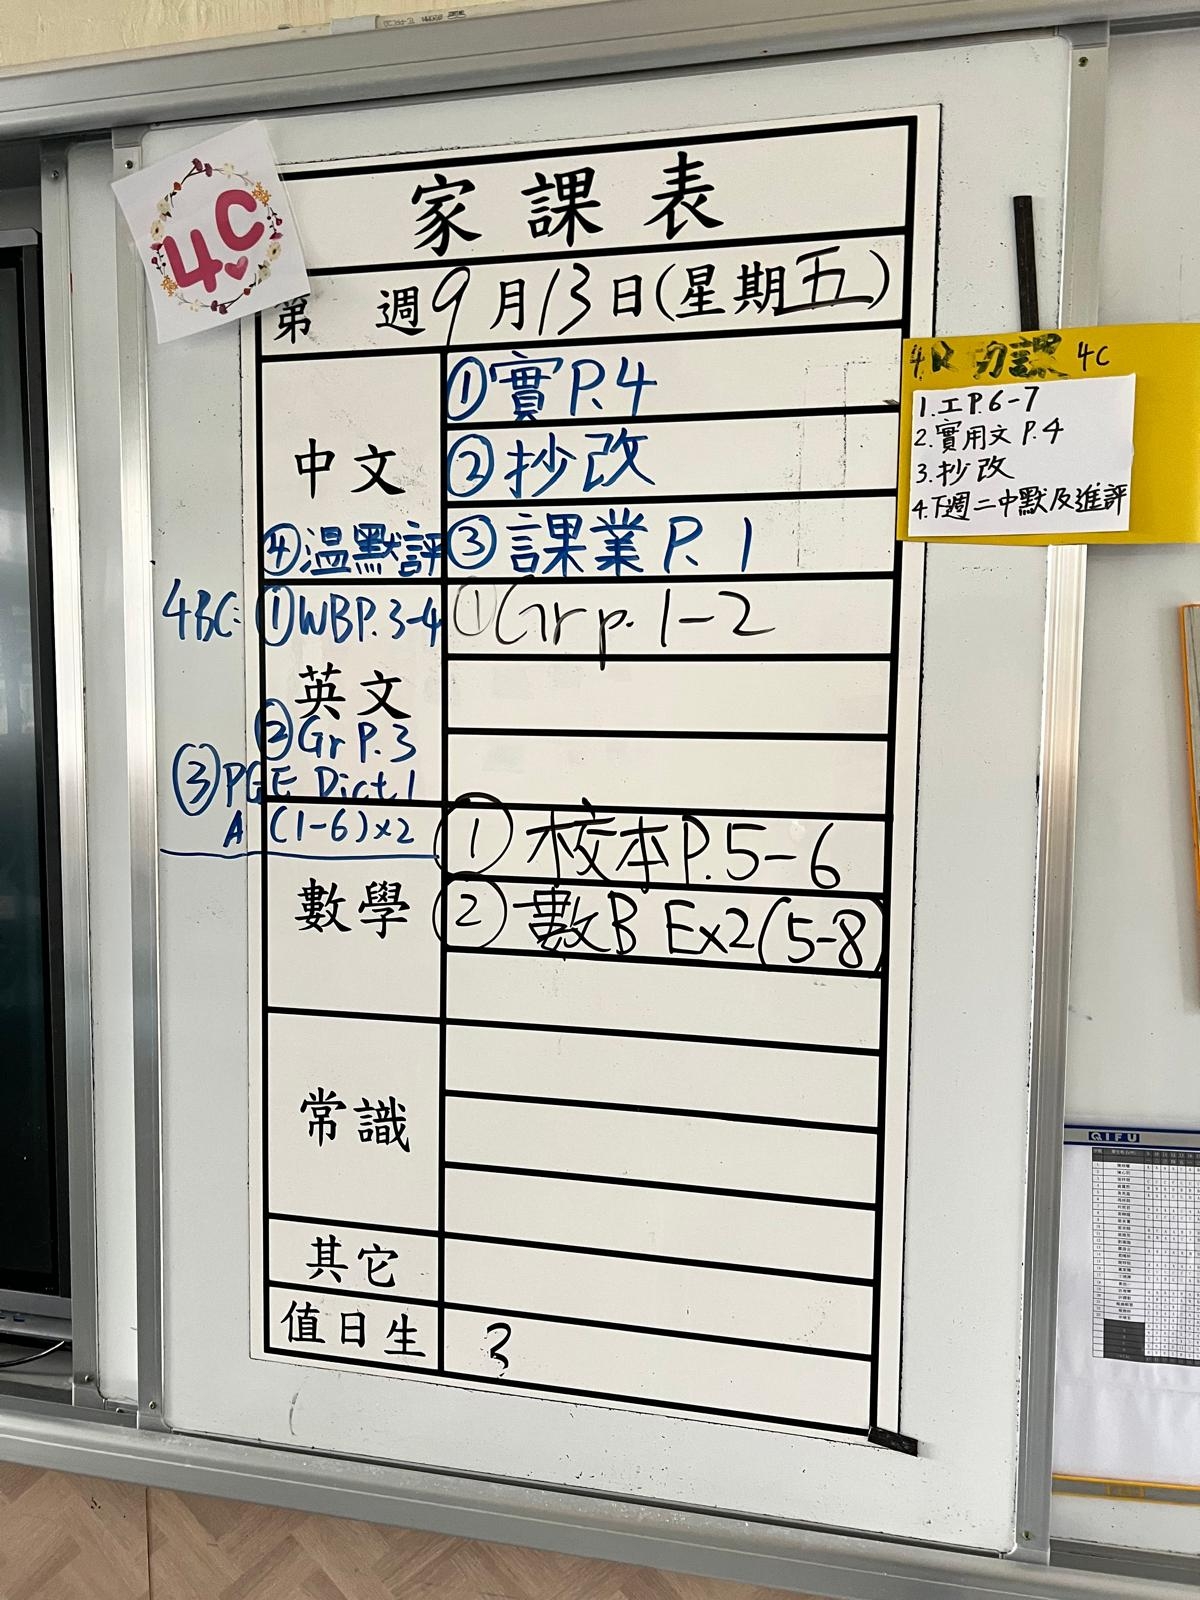 4C
家課表
第 週 9月13日(星期五)
中文
①實P.4
②抄改
③課業P.1
④溫默評
4BC: ①WBP.3-4
①Gr p.1-2
英文
②Gr P.3
③PGE Dict.1
A (1-6)x2
數學
① 校本P.5-6
② 數B Ex2(5-8)
常識
其它
值日生 3
功課 4C
1.工P.6-7
2.實用文 P.4
3.抄改
4.下週二中默及進評
QIFU